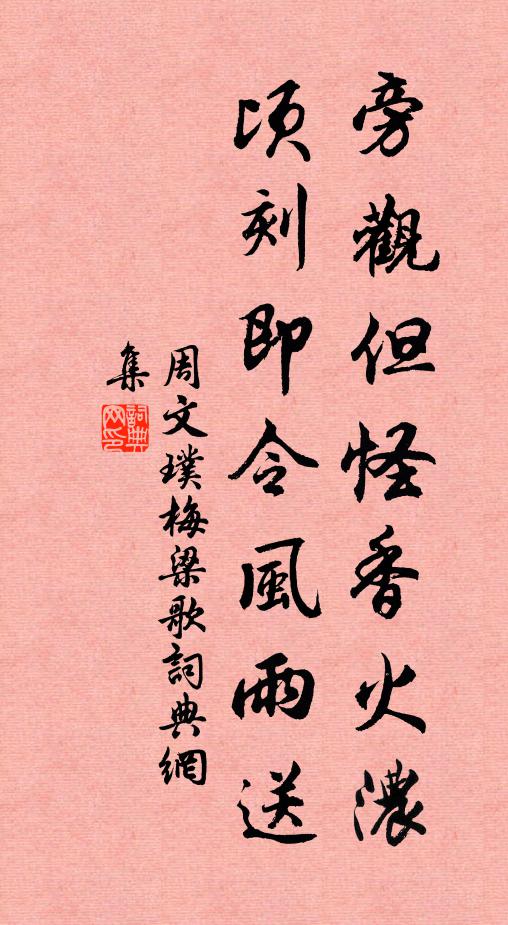 旁觀但怪香火濃
頃刻即令風雨送
周文璞梅梁歌詞典網
集
詞典網印